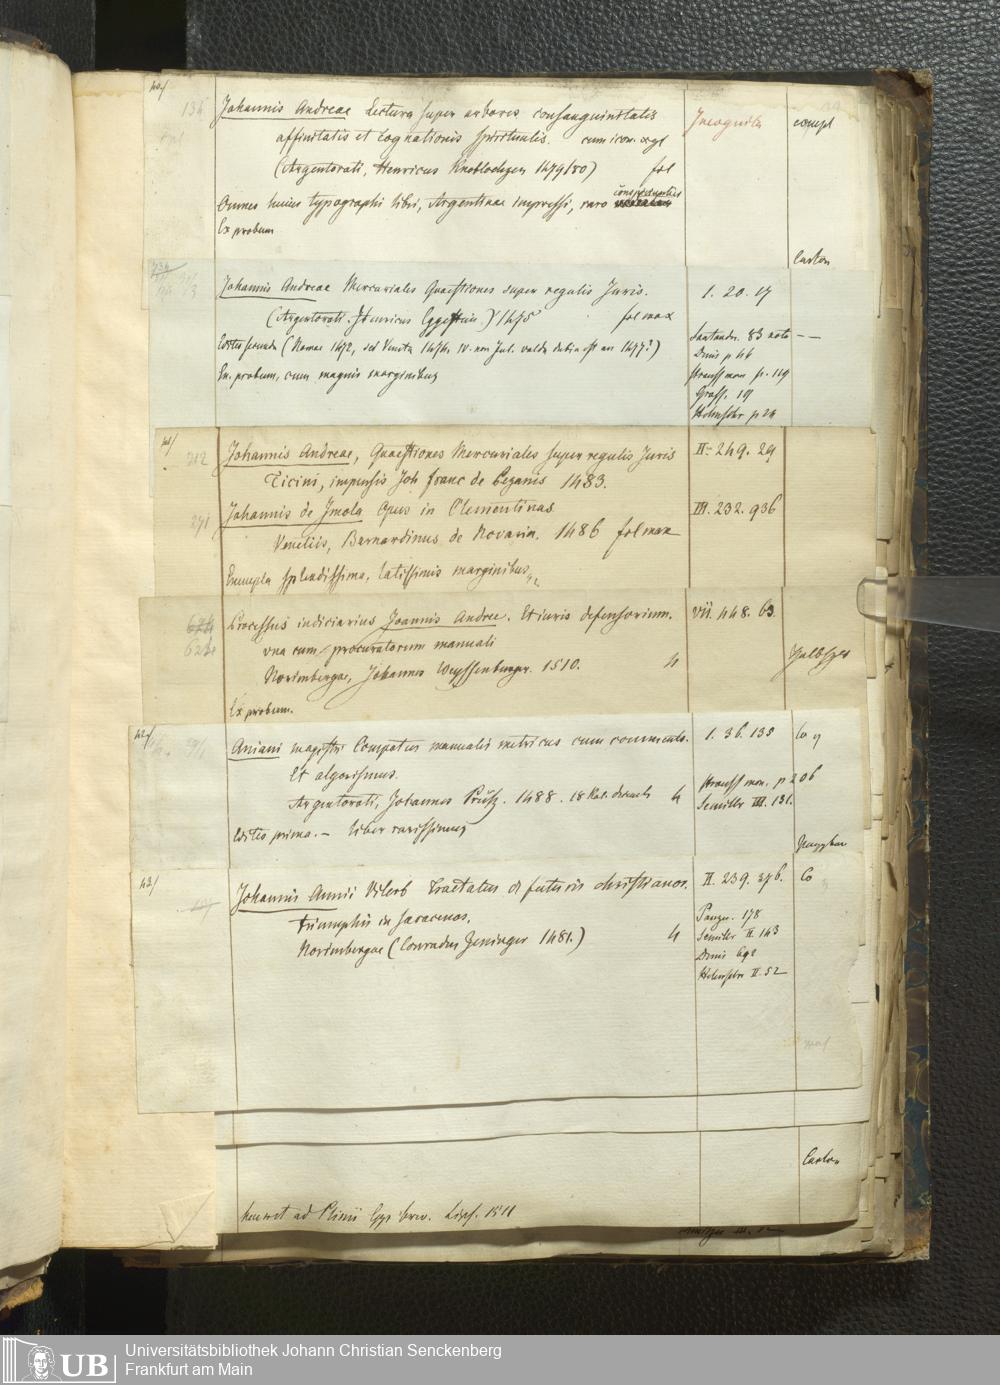 40/
134
Johannis Andreae Lectura super arbores consanguinitatis
affinitatis et cognationis spiritualis. cum icon. xyl
(Argentorati, Henricus Knoblochzer 1479/80) fol
Omnes huius typographi libri, Argentinae impressi, raro conspiciuntur
Ex probum
Incognita
compl
Carton
Johannis Andreae Mercuriales Quaestiones super regulis Juris.
(Argentorati. Henricus Eggestein.) 1475 fol max
Editio secunda (Romae 1472, sed Veneta 1474, IV. non Jul. valde dubia est an 1477?)
Ex. probum, cum magnis marginibus
1. 20. 17
Santander. 83 nota
Denis p 44
Strauss mon p. 119
Graff. 19
Helmschr p 24
41/
212
Johannis Andreae, Quaestiones Mercuriales super regulis Juris
Ticini, impensis Joh franc de Peganis 1483.
II. 249. 29
291
Johannis de Jmola Opus in Clementinas
Venetiis, Bernardinus de Novaria. 1486 fol max
Exempla splendissima, latissimis marginibus
III. 232. 936
624
624
Processus iudiciarius Joannis Andree. Et iuris defensorium.
vna cum procuratorum manuali
Norimbergae, Johannes Weyssenburger. 1510. 4
Ex probum.
VII. 448. 63.
Halbfzbd
42/
Aniani magistri Computus manualis metricus cum commento.
Et algorismus.
Argentorati, Johannes Prüsz. 1488. 18 Kal. decemb 4
Editio prima. – liber rarissimus
1. 36. 135
Strauss mon. p 206
Semiller III. 131.
Co
43/
Johannis Annii Viterb Tractatus de futuris christianor.
triumphis in saracenos.
Norimbergae (Conradus Zeninger 1481.) 4
II. 239. 376.
Panzer. 178
Semiller II. 143
Denis 692
Helmschr II. 52
Co
Carton
ad Plinii brev. Lips. 1511
Universitätsbibliothek Johann Christian Senckenberg
Frankfurt am Main
UB